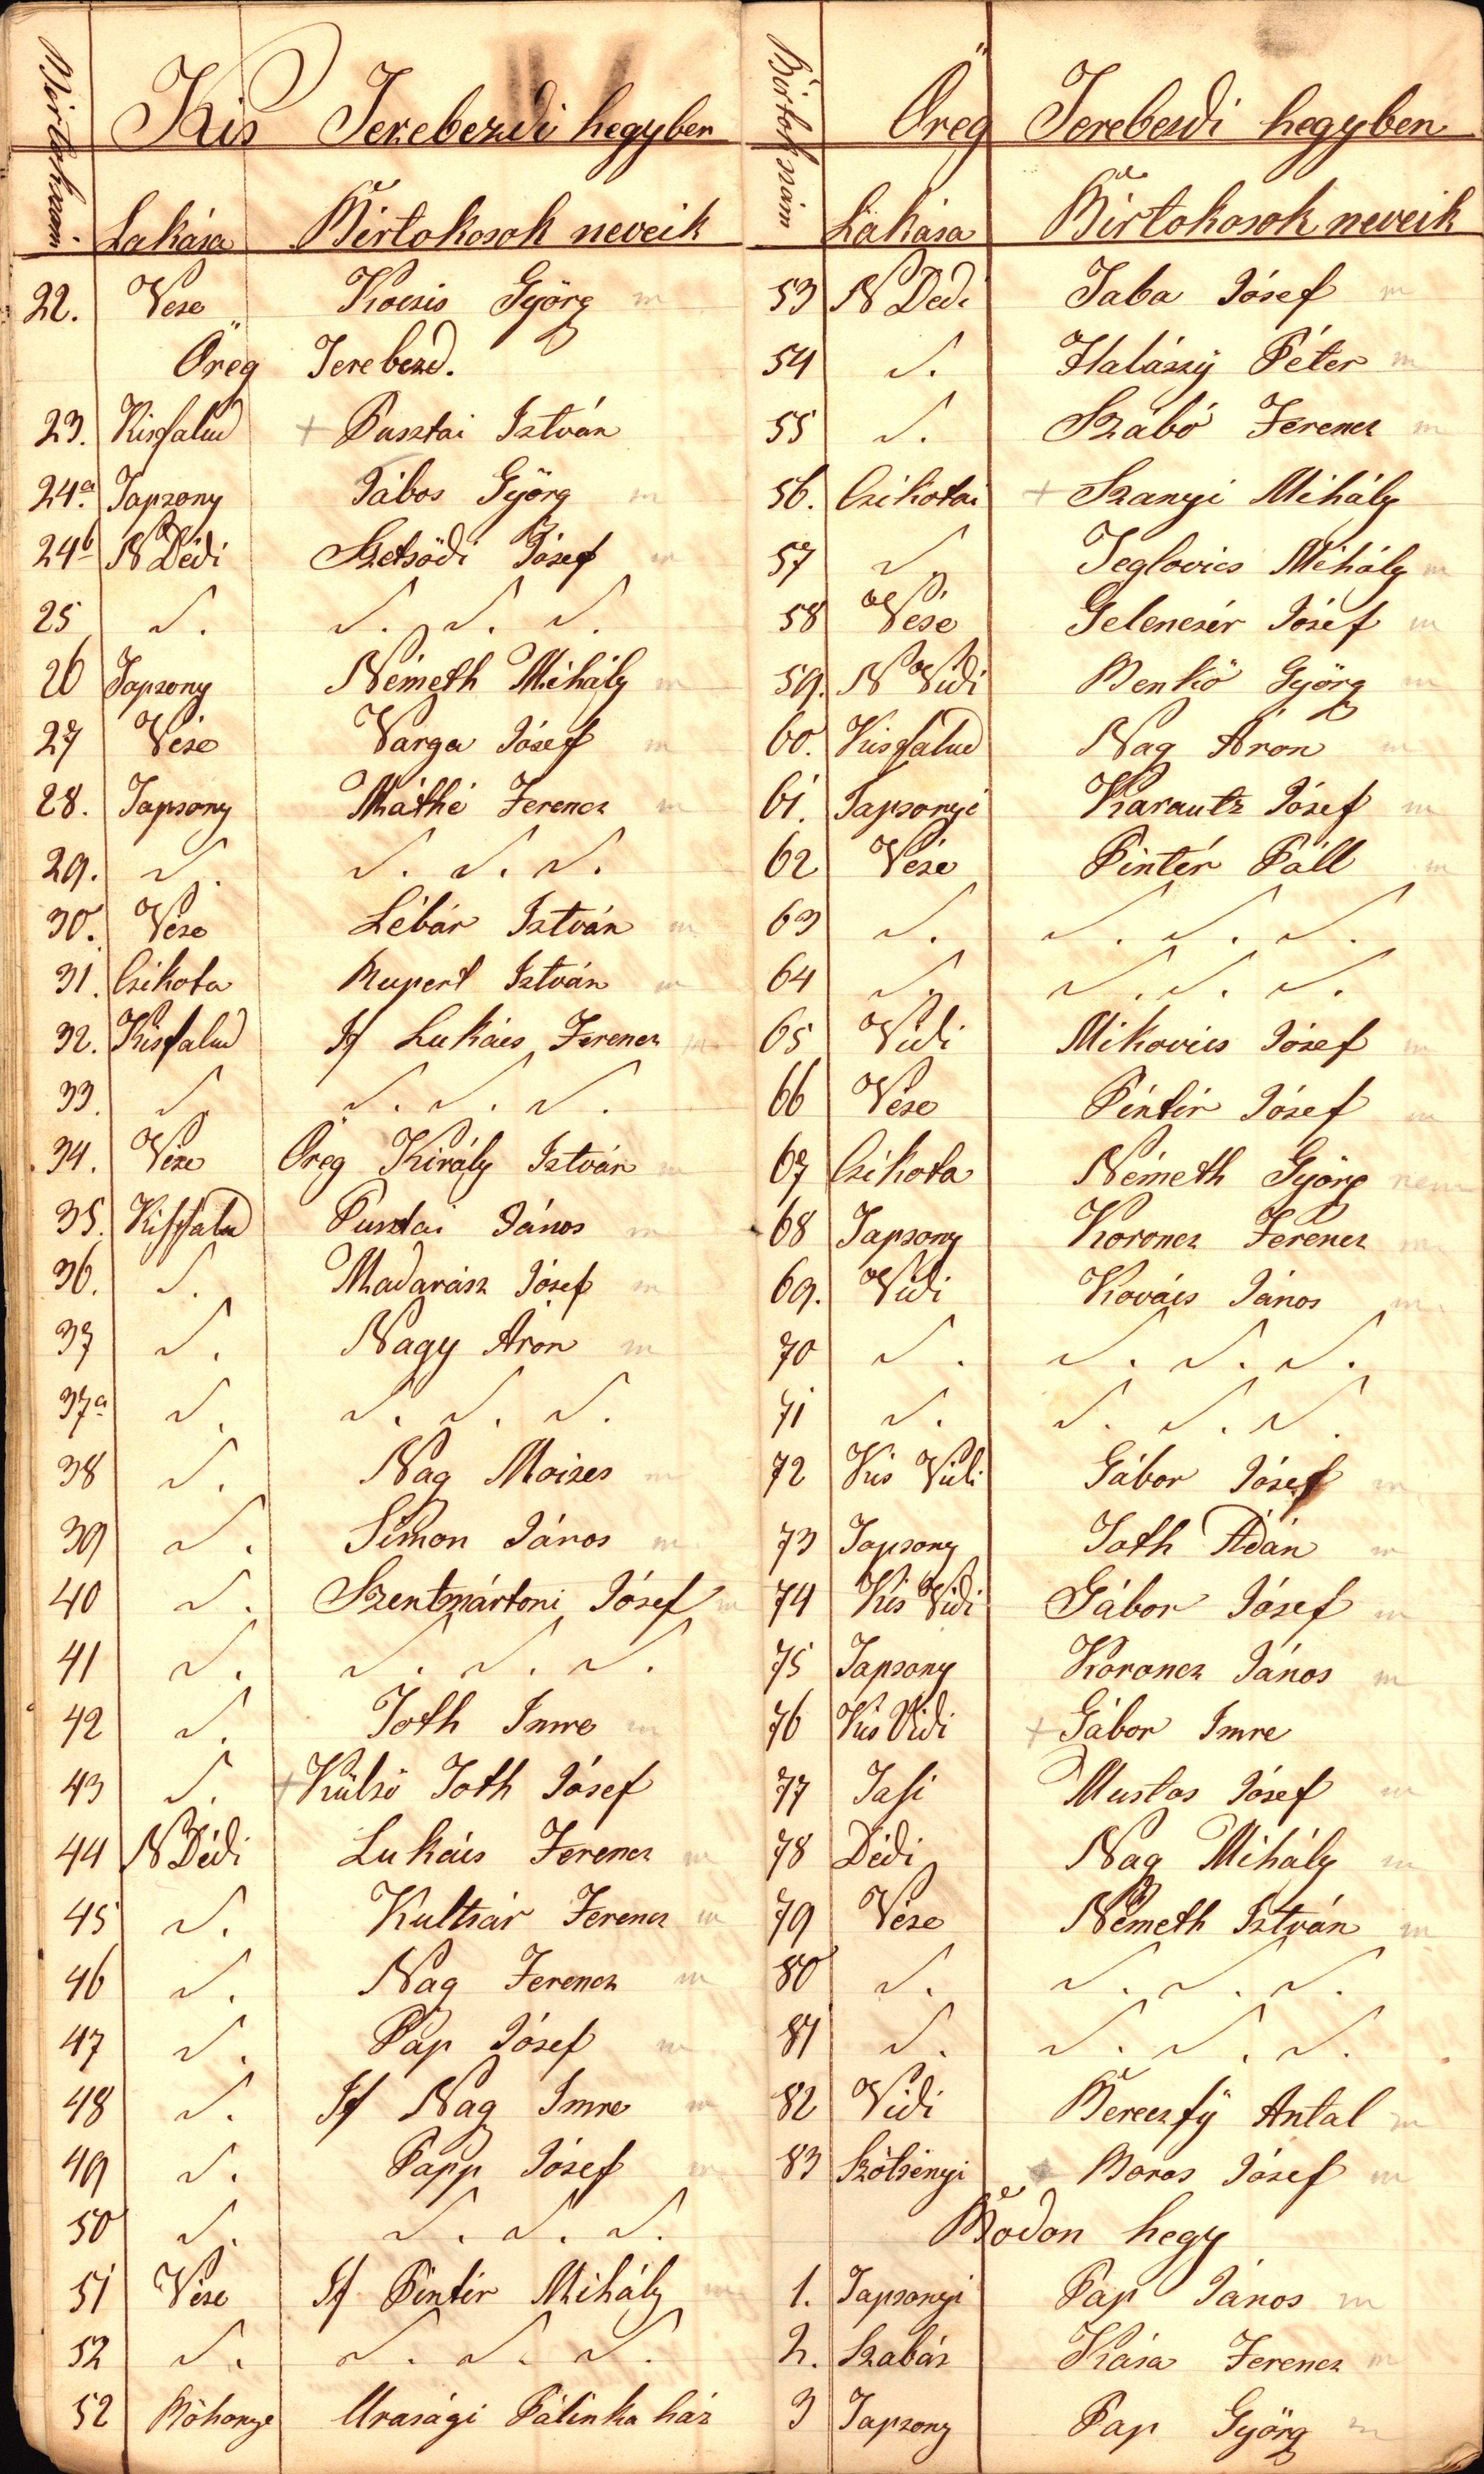 Kis Terebezdi hegyben
Birtokszám. Lakása Birtokosok neveik
22. Vese Kocsis Györg m
Öreg Terebezd.
23. Kisfalud + Pusztai István
24a. Tapsony Tábos Györg m
24b N Dédi Szetsődi Jósef m
25 〃. 〃. 〃. 〃.
26 Tapsony Németh Mihály m
27 Vése Varga Jósef m
28. Tapsony Máthé Ferencz m
29. 〃. 〃. 〃. 〃.
30. Vése Lébár István m
31. Csikota Rupert István m
32. Kisfalud If Lukács Ferencz m
33. 〃. 〃. 〃. 〃.
34. Vése Öreg Király István m
35. Kisfalud Pusztai János m
36. 〃. Madarász Jósef m
37 〃. Nagy Áron m
37a 〃. 〃. 〃. 〃.
38 〃. Nag Moises m
39 〃. Simon János m
40 〃. Szentmártoni Jósef m
41 〃. 〃. 〃. 〃.
42 〃. Toth Imre m
43 〃. + Külső Toth Jósef
44 N Dédi Lukács Ferencz m
45 〃. Kultsár Ferencz m
46 〃. Nag Ferencz m
47 〃. Pap Jósef m
48 〃. If Nag Imre m
49 〃. Papp Jósef m
50 〃. 〃. 〃. 〃.
51 Vése If Pintér Mihály m
52 〃. 〃. 〃. 〃.
52 Böhönye Urasági Pálinka ház
Öreg Terebezdi hegyben
Birtokszám Lakása Birtokosok neveik
53 N Dedi Taba Jósef m
54 〃. Halászÿ Péter m
55 〃. Szabó Ferencz m
56. Csikotai + Szanyi Mihály
57 〃. Teglovics Mihály m
58 Vése Gelencsér Jósef m
59. N Vidi Benkő Györg m
60. Kisfalud Nag Áron m
61. Tapsonyi Karautz Jósef m
62 Vése Pintér Páll m
63 〃. 〃. 〃. 〃.
64 〃. 〃. 〃. 〃.
65 Vidi Mikovics Jósef m
66 Vése Pintér Jósef m
67 Csikota Németh Györg nem
68 Tapsony Koroncz Ferencz m
69. Vidi Kovács János m
70 〃. 〃. 〃. 〃.
71 〃. 〃. 〃. 〃.
72 Kis Vidi Gábor Jósef m
73 Tapsony Toth Ádán m
74 Kis Vidi Gábor Jósef m
75 Tapsony Koroncz János m
76 Kis Vidi + Gábor Imre
77 Jasi Mustos Jósef m
78 Dédi Nag Mihály m
79 Vése Németh István m
80 〃. 〃. 〃. 〃.
81 〃. 〃. 〃. 〃.
82 Vidi Bereczfÿ Antal m
83 Szötsényi Boros Jósef m
Bodon hegy
1. Tapsonyi Pap János m
2. Szabás Kása Ferencz m
3 Tapsony Pap Györg m